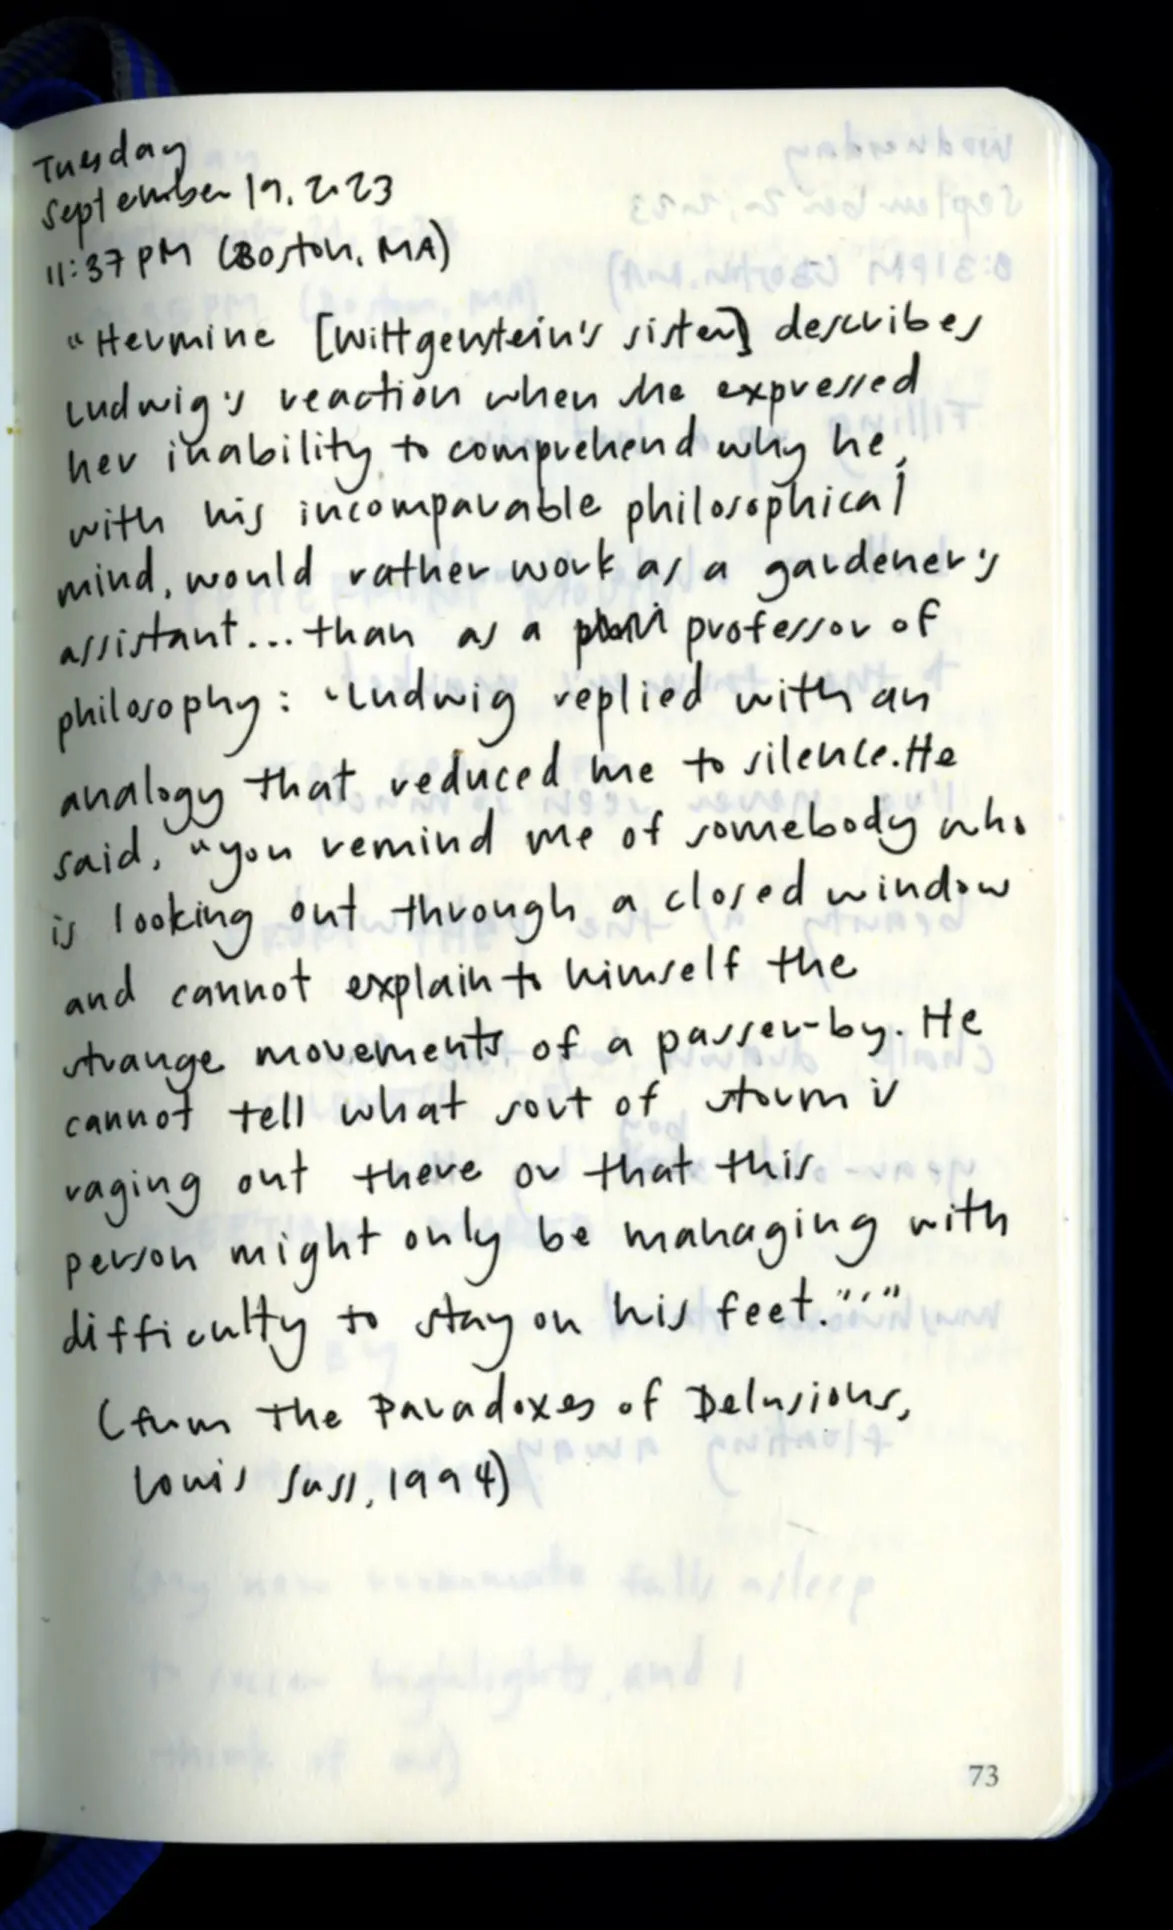 Tuesday
September 19, 2023
11:37 PM (Boston, MA)
"Hermine [Wittgenstein's sister] describes
Ludwig's reaction when she expressed
her inability to comprehend why he,
with his incomparable philosophical
mind, would rather work as a gardener's
assistant... than as a professor of
philosophy: 'Ludwig replied with an
analogy that reduced me to silence. He
said, "You remind me of somebody who
is looking out through a closed window
and cannot explain to himself the
strange movements of a passer-by. He
cannot tell what sort of storm is
raging out there or that this
person might only be managing with
difficulty to stay on his feet."'"
(from The Paradoxes of Delusions,
Louis Sass, 1994)
73